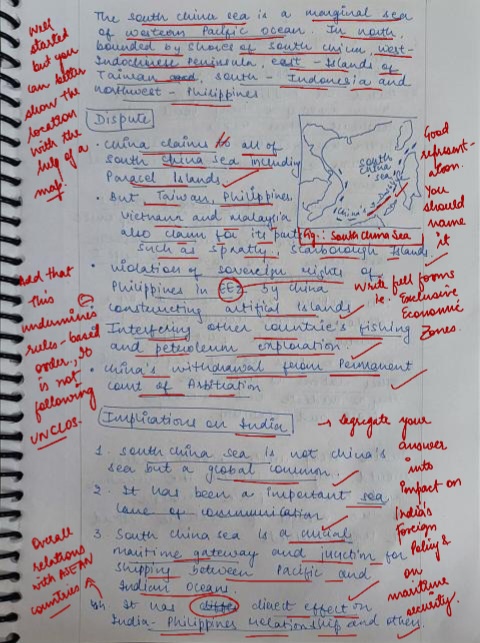 The south china sea is a marginal sea
of western Pacific ocean. In north
bounded by shores of south china, west-
Indochinese Peninsula, east - Islands of
Taiwan and, south - Indonesia and
northwest - Philippines.
Well
started
but you
can better
show the
location
with the
help of a
map.
Dispute
• China claims to all of
south china sea including
Paracel Islands
• But Taiwan, Philippines
Vietnam and malaysia
also claim for its part
such as Spratly, Scarborough Islands.
SOUTH
CHINA
SEA
China's
Fig.: South China Sea
Good
represent-
ation.
You
should
name
it
• violation of sovereign rights of
Philippines in EEZ by China
constructing artifial Islands
Interfering other countrie's fishing
and petroleum exploration.
• China's withdrawal from Permanent
court of Arbitration
write full forms
ie. Exclusive
Economic
Zone.
Add that
this
undermines
rules-based
order, it
is not
following
UNCLOS.
Implications on India
→ Segregate your
answer
into
Impact on
India's
Foreign
Policy &
on
maritime
security.
1. South china sea is not china's
sea but a global common.
2. It has been a important sea
lane of communication
3. South china sea is a crucial
maritime gateway and junction for
shipping between Pacific and
Indian Oceans.
It has direct effect on
India-Philippines relationship and others.
Overall
relations
with ASEAN
countries